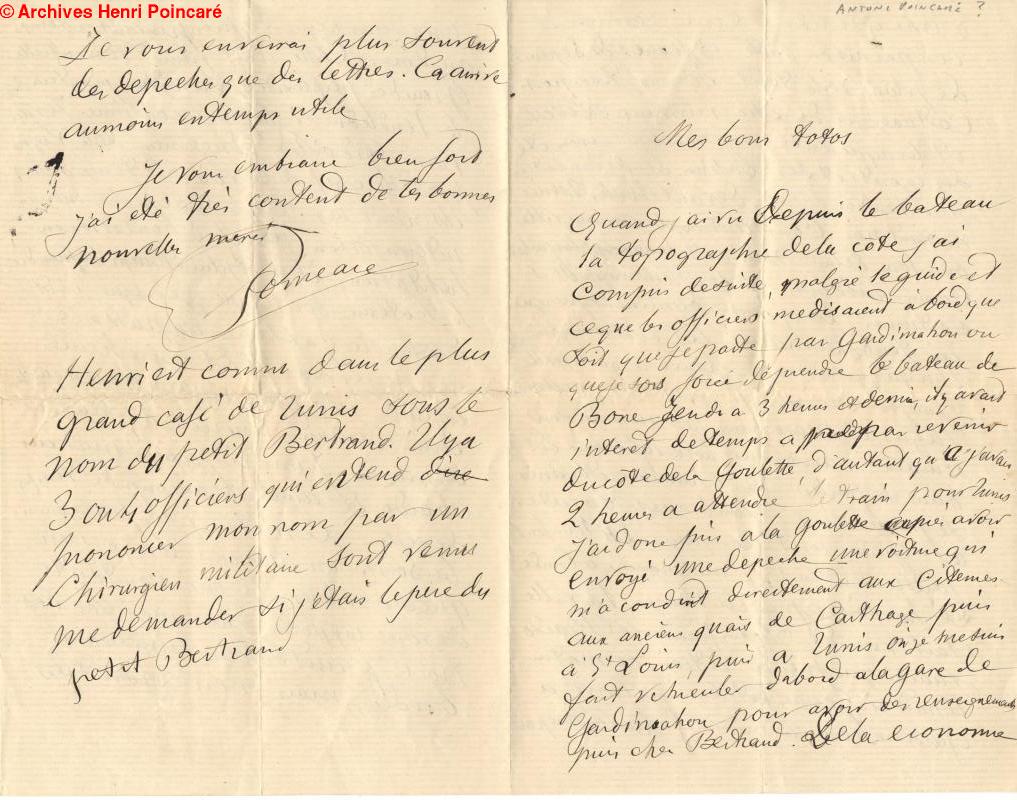 © Archives Henri Poincaré
ANTONI POINCARÉ ?
Je vous enverrai plus souvent
des depeches que des lettres. Ca arrive
aumoins entemps utile
Je vous embrasse bien fort
j'ai été très content de tes bonnes
nouvelles merci
Poincaré
Henri est connu dans le plus
grand café de Tunis sous le
nom du petit Bertrand. Il y a
3 ou 4 officiers qui entend dire
prononcer mon nom par un
Chirurgien militaire sont venus
me demander si j'étais le pere du
petit Bertrand
Mes bons totos
Quand j'ai vu Depuis le bateau
la topographie de la côte j'ai
compris desuite, malgré le guide et
ceque les officiers me disaient à bord que
soit que je parte par Gardimahou ou
que je sois forcé de prendre le bateau de
Bone jeudi a 3 heures et demie, il y avait
interet de temps a par revenir
du côté de la Goulette, d'autant qu'a j'avais
2 heures a attendre le train pour Tunis
j'ai donc pris a la goulette après avoir
envoyé une depeche une voiture qui
m'a conduit directement aux Citernes
aux anciens quais de Carthage puis
à St Louis, puis a Tunis ou je me suis
fait vehiculer dabord a la gare de
Gardimahou pour avoir des renseignements
puis chez Bertrand. De la economie